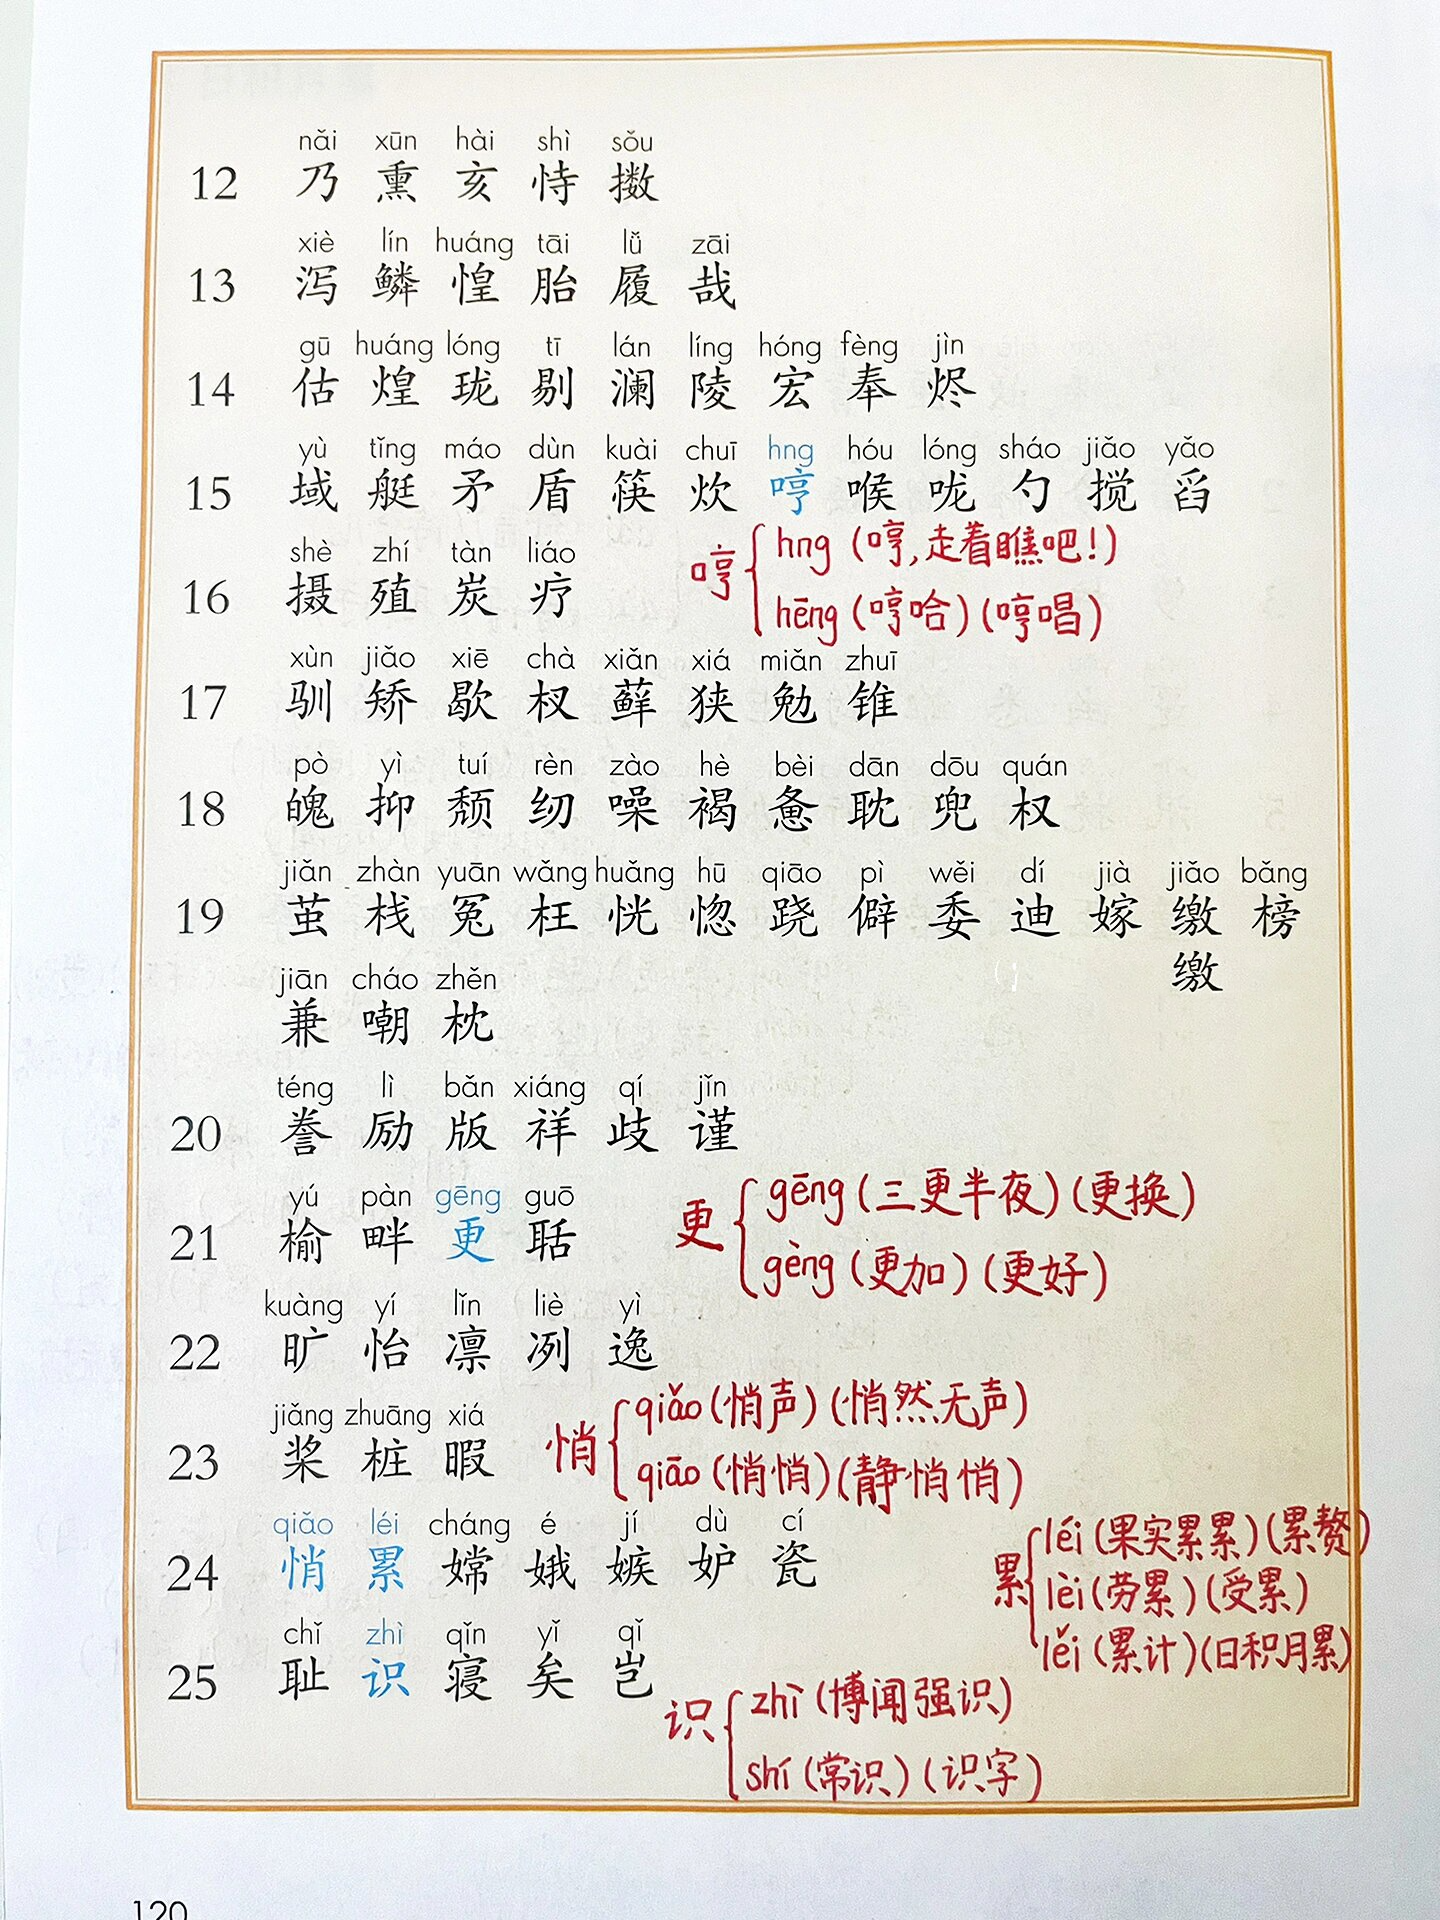 nǎi xūn hài shì sǒu
12 乃 熏 亥 恃 擞
xiè lín huáng tāi lǚ zāi
13 泻 鳞 惶 胎 履 哉
gū huáng lóng tī lán líng hóng fèng jìn
14 估 煌 珑 剔 澜 陵 宏 奉 烬
yù tǐng máo dùn kuài chuī hng hóu lóng sháo jiǎo yǎo
15 域 艇 矛 盾 筷 炊 哼 喉 咙 勺 搅 舀
shè zhí tàn liáo
16 摄 殖 炭 疗
哼 hng (哼,走着瞧吧!)
hēng (哼哈) (哼唱)
xùn jiǎo xiē chà xiǎn xiá miǎn zhuī
17 驯 矫 歇 杈 藓 狭 勉 锥
pò yì tuí rèn zào hè bèi dān dōu quán
18 魄 抑 颓 纫 噪 褐 惫 耽 兜 权
jiǎn zhàn yuān wǎng huǎng hū qiāo pì wěi dí jià jiǎo bǎng
19 茧 栈 冤 枉 恍 惚 跷 僻 委 迪 嫁 缴 榜
缴
jiān cháo zhěn
兼 嘲 枕
téng lì bǎn xiáng qí jǐn
20 誊 励 版 祥 歧 谨
yú pàn gēng guō
21 榆 畔 更 聒
更 gēng (三更半夜) (更换)
gèng (更加) (更好)
kuàng yí lǐn liè yì
22 旷 怡 凛 冽 逸
jiǎng zhuāng xiá
23 桨 桩 暇
悄 qiǎo (悄声) (悄然无声)
qiāo (悄悄) (静悄悄)
qiǎo léi cháng é jí dù cí
24 悄 累 嫦 娥 嫉 妒 瓷
累 léi (果实累累) (累赘)
lèi (劳累) (受累)
lěi (累计) (日积月累)
chǐ zhì qǐn yǐ qǐ
25 耻 识 寝 矣 岂
识 zhì (博闻强识)
shí (常识) (识字)
120